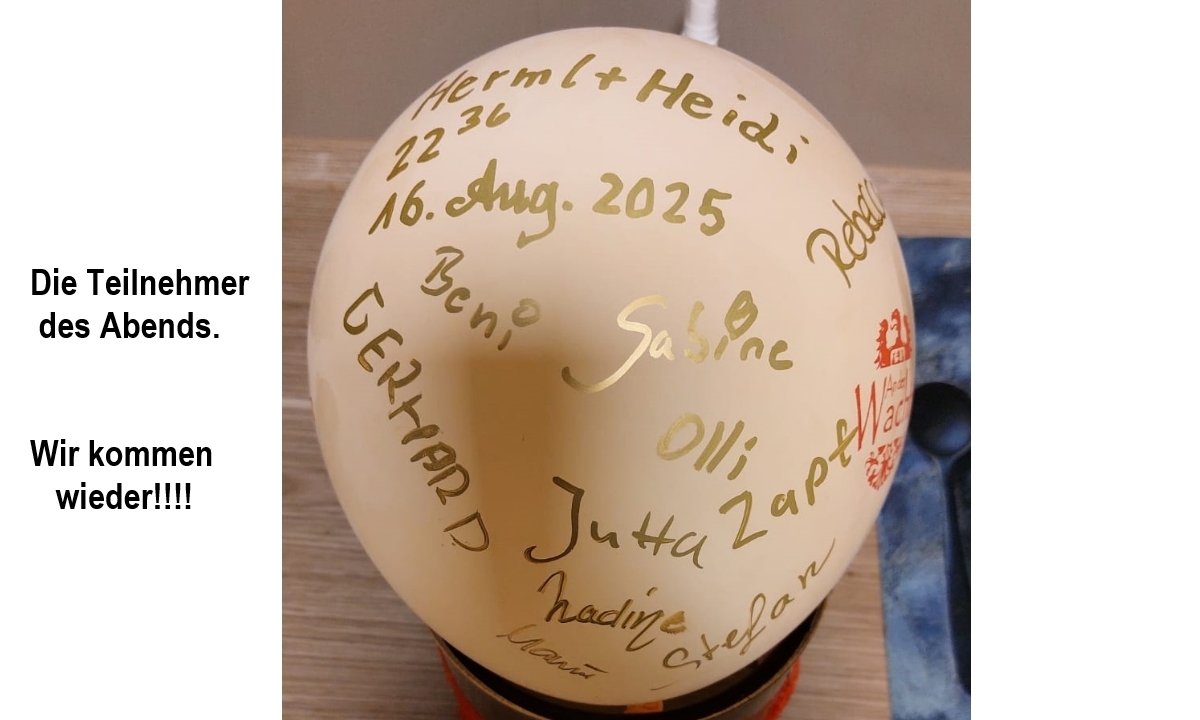 Die Teilnehmer
des Abends.
Wir kommen
wieder!!!!
Herml + Heidi
22 36
16. Aug. 2025
Rebecc
Beni
GERHARD
Sabine
Olli
Jutta Zapf
Nadine
Stefan
An der
Wach